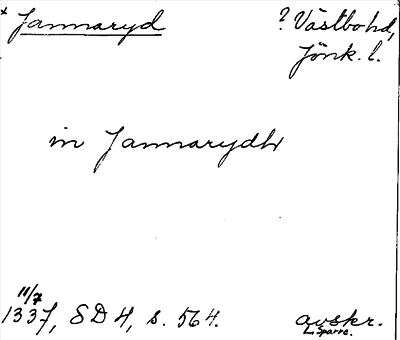 * Jannaryd ? Västbo hd,
Jönk. l.
in Jannarydh
11/7
1337, SD 4, s. 564. avskr.
L. Sparre.